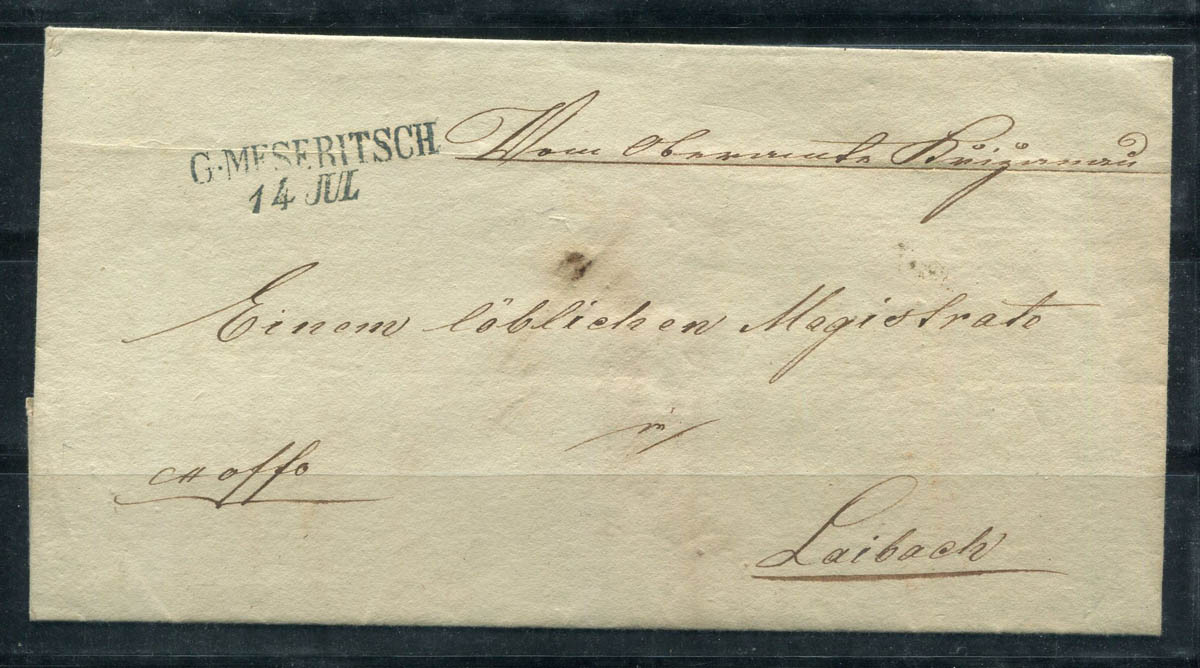 G. MESERITSCH
14 JUL
Vom Oberamte Križanau
Einem löblichen Magistrate
in
Laibach